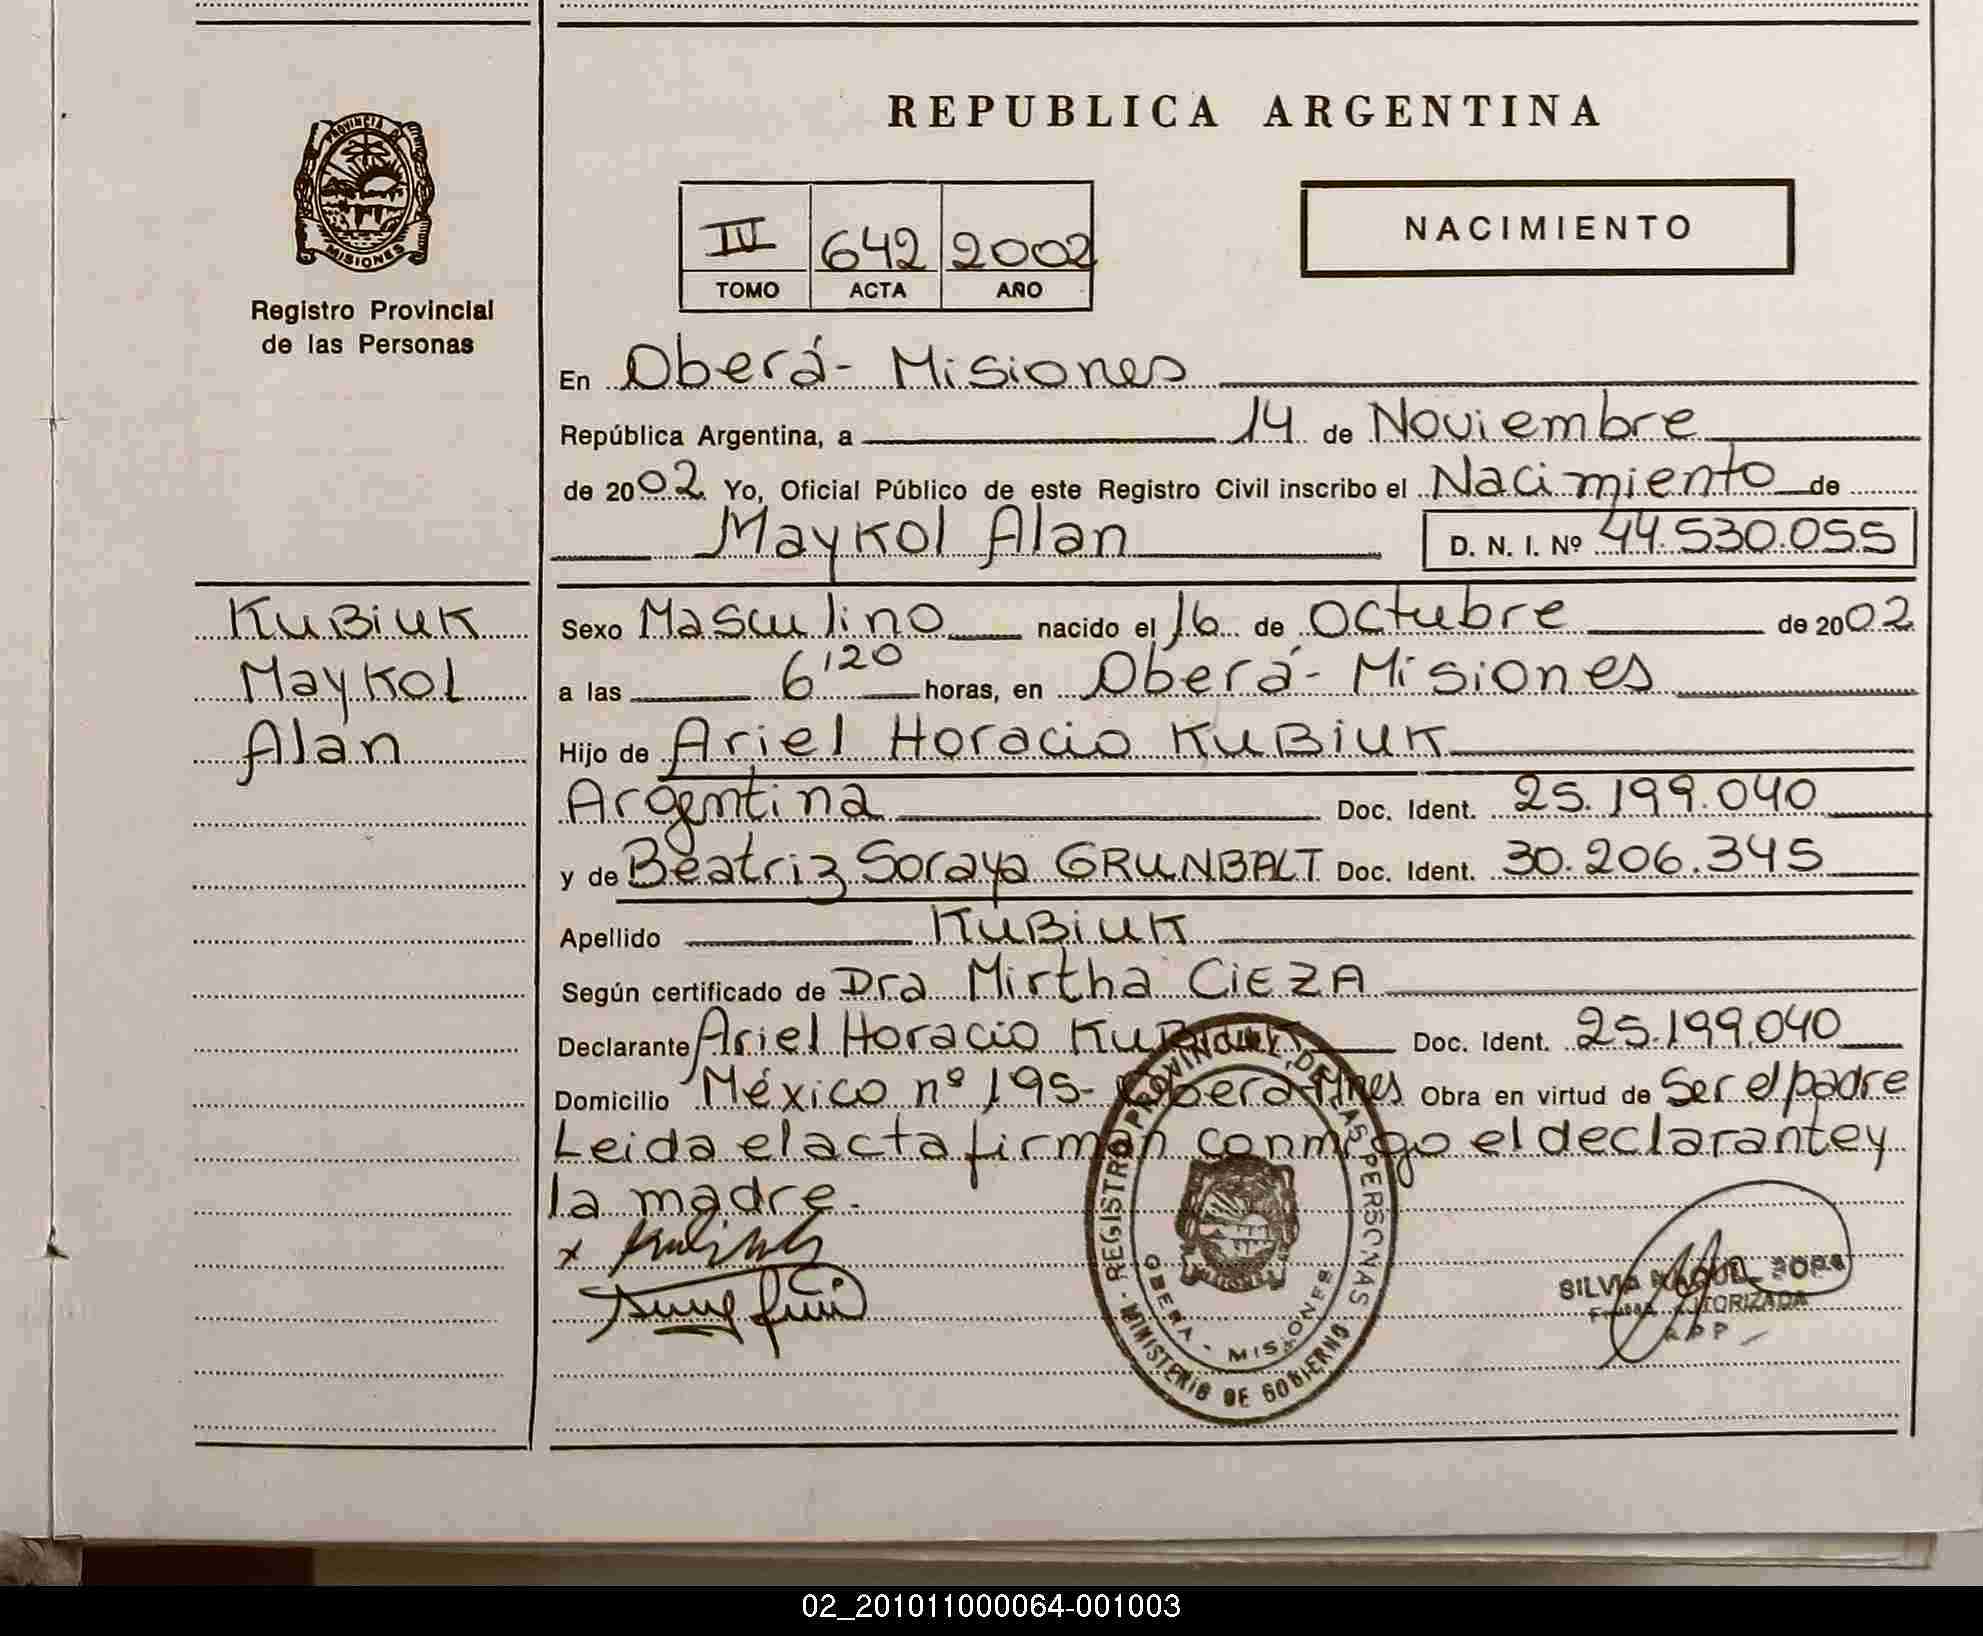 REPUBLICA ARGENTINA
PROVINCIA DE
MISIONES
Registro Provincial
de las Personas
IV 642 2002
TOMO ACTA AÑO
NACIMIENTO
En Oberá - Misiones
República Argentina, a 14 de Noviembre
de 2002. Yo, Oficial Público de este Registro Civil inscribo el Nacimiento de
Maykol Alan D. N. I. Nº 44.530.055
KUBiUK
Maykol
Alan
Sexo Masculino nacido el 16 de Octubre de 2002
a las 6'20 horas, en Oberá - Misiones
Hijo de Ariel Horacio KUBiUK
Argentina Doc. Ident. 25.199.040
y de Beatriz Soraya GRUNBALT Doc. Ident. 30.206.345
Apellido KUBiUK
Según certificado de Dra Mirtha CiEZA
Declarante Ariel Horacio KUBIUK Doc. Ident. 25.199.040
Domicilio México nº 195- Oberá Mnes Obra en virtud de Ser el padre
Leida el acta firman conmigo el declarante y
la madre.-
x
REGISTRO PROVINCIAL DE LAS PERSONAS
OBERA - MISIONES
MINISTERIO DE GOBIERNO
SILVIA RAQUEL
AUTORIZADA
02_201011000064-001003